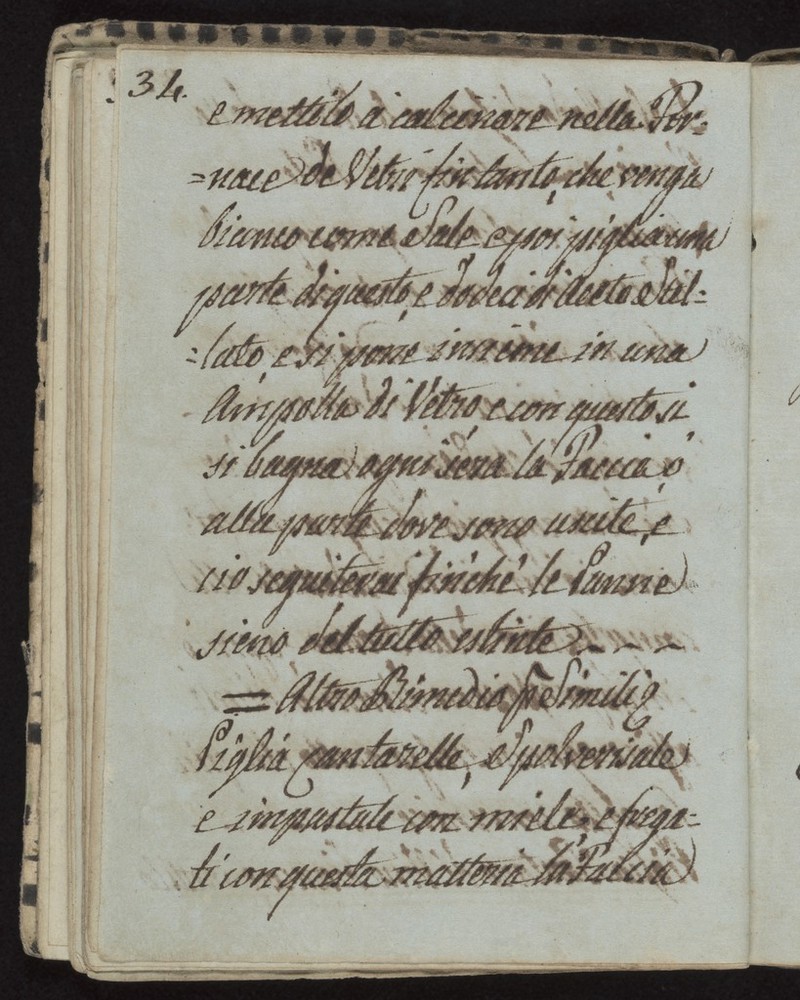 34.
e mettilo à calcinare nella For-
=nace de Vetri fin tanto, che venga
bianco come Sale e poi piglia una
parte di questo, e dodeci di Aceto Stil=
=lato, e si pone insieme in una
Ampolla di Vetro e con questo si
si bagna ogni sera la Faccia, ó
alla parte dove sono uscite, é
ciò seguiterai finché le Panne
sieno del tutto estinte - - -
= Altro Rimedio p Simili
Piglia cantarelle, e Spolverisale
e impastale con miele, e frega=
ti con questa matteria la Faccia